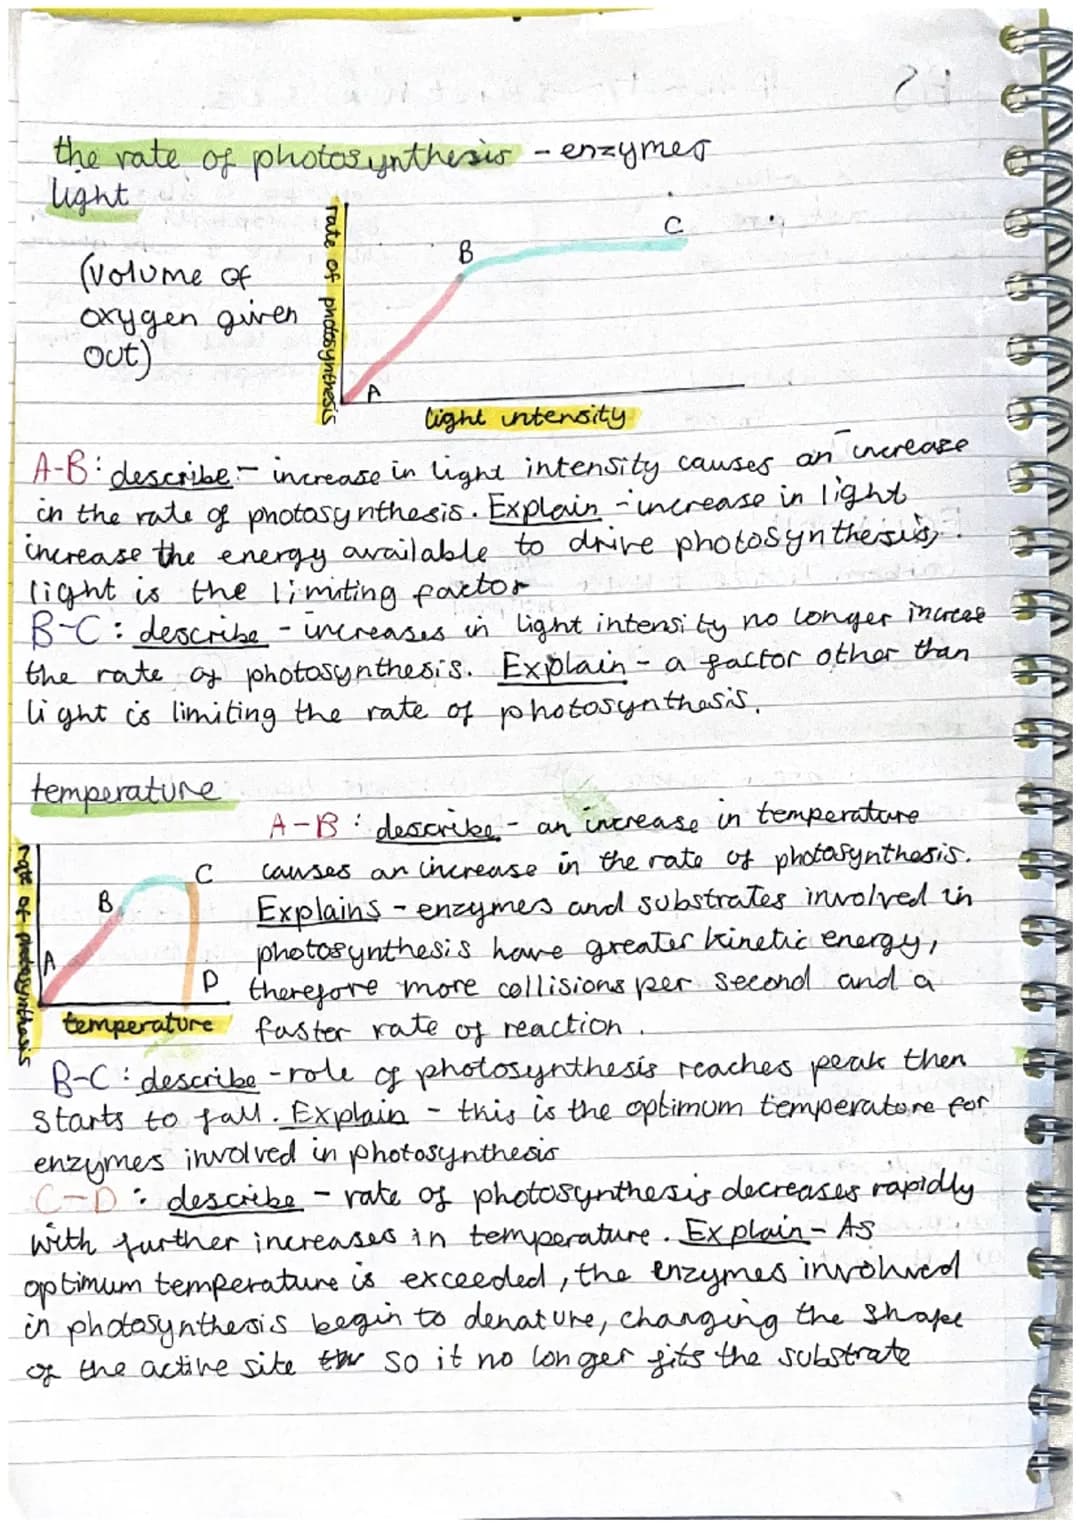 the rate of photosynthesis - enzymes
light
(volume of
oxygen given
out)
rate of photosynthesis
A
B
C
light intensity
A-B: describe:- increase in light intensity causes an increase
in the rate of photosynthesis. Explain - increase in light
increase the energy available to drive photosynthesis,.
light is the limiting factor
B-C: describe - increases in light intensity no longer increase
the rate of photosynthesis. Explain - a factor other than
light is limiting the rate of photosynthesis.
temperature
rate of photosynthesis
A
B
C
D
temperature
A-B: describe - an increase in temperature
causes an increase in the rate of photosynthesis.
Explains - enzymes and substrates involved in
photosynthesis have greater kinetic energy,
therefore more collisions per second and a
faster rate of reaction.
B-C: describe - role of photosynthesis reaches peak then
starts to fall. Explain - this is the optimum temperature for
enzymes involved in photosynthesis
C-D: describe - rate of photosynthesis decreases rapidly
with further increases in temperature. Explain - As
optimum temperature is exceeded, the enzymes involved
in photosynthesis begin to denature, changing the shape
of the active site so it no longer fits the substrate